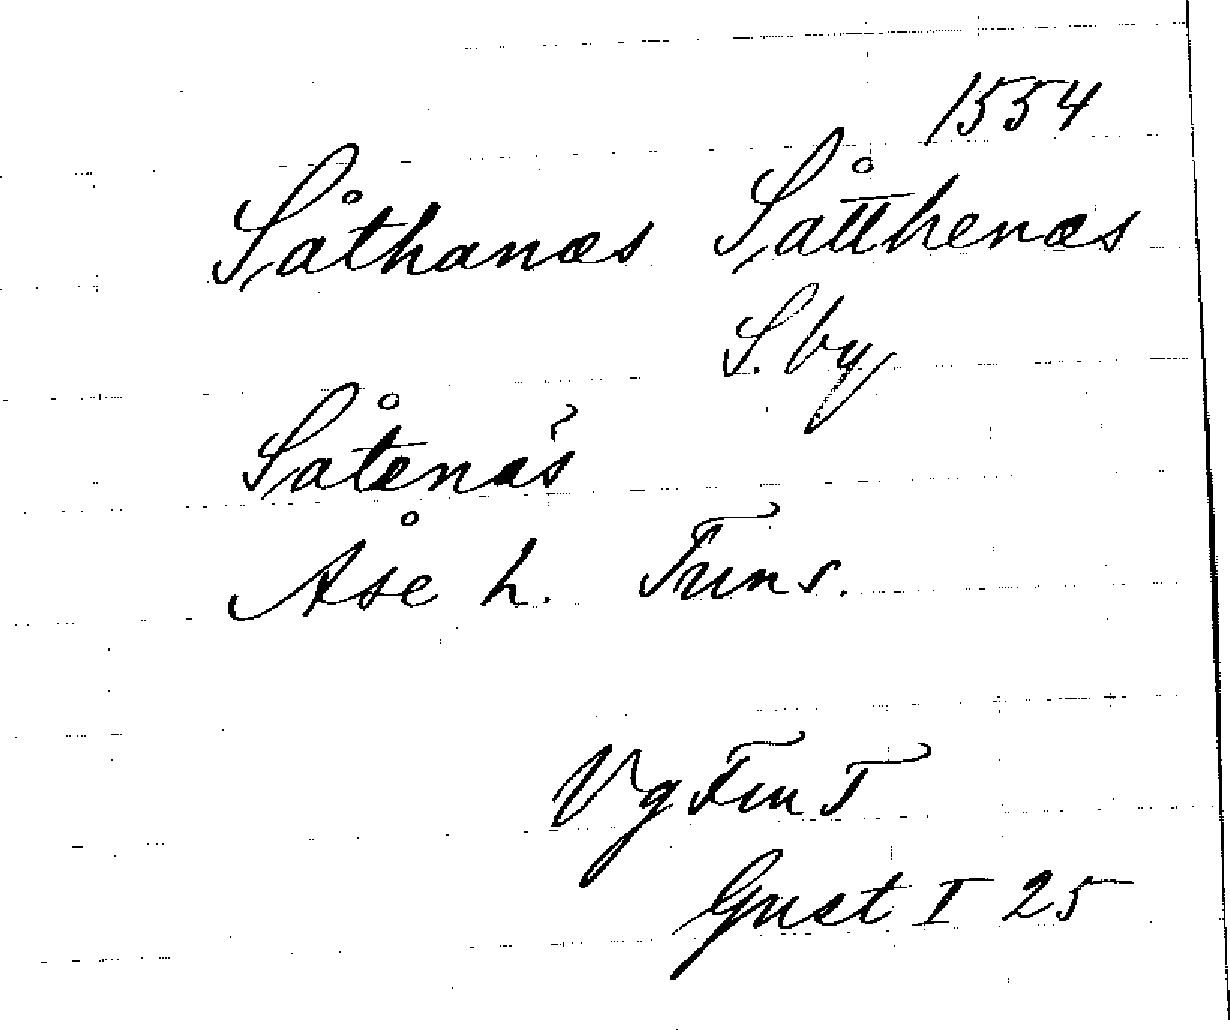 1554
Såthanæs Såtthenæs
S. by
Såtenäs
Åse h. Tuns.
Vg Tun T
Gust I 25